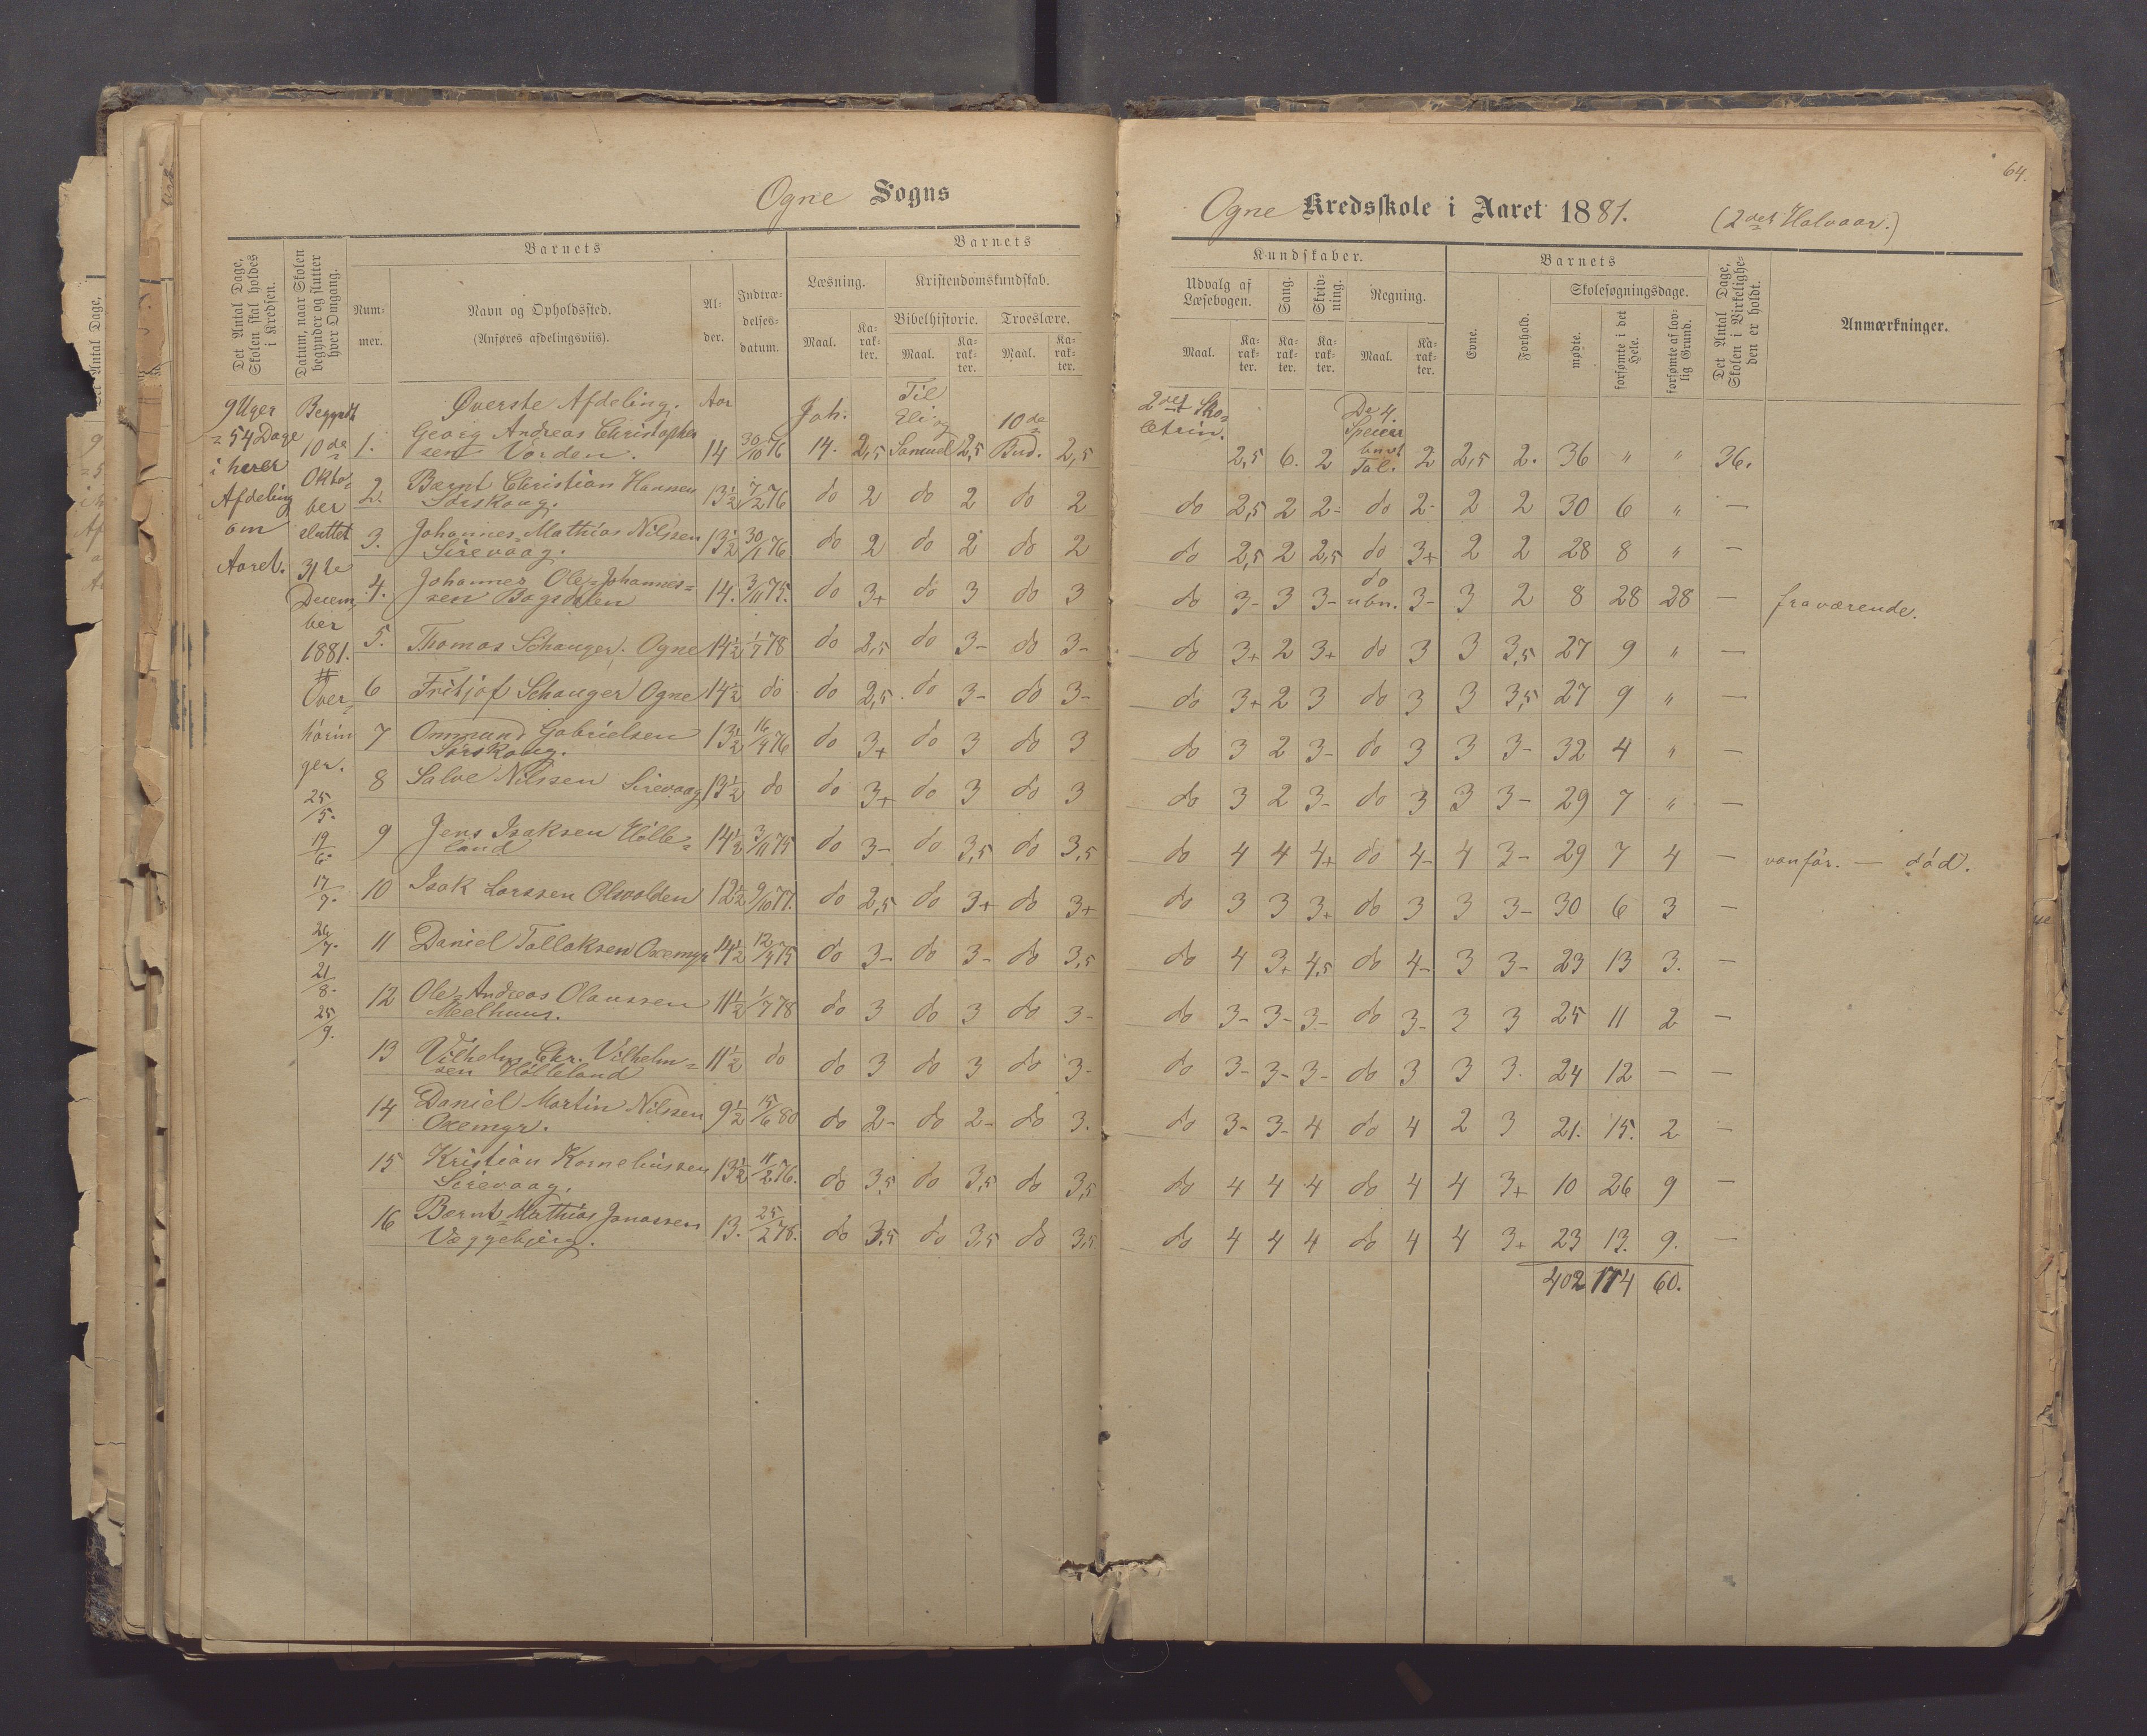 Ogne Sogns
Ogne Kredsskole i Aaret 1881. (2det Halvaar.)
64.
Det Antal Dage, Skolen skal holdes i Kredsen.
Datum, naar Skolen begynder og slutter hver Omgang.
Barnets
Nummer.
Navn og Opholdssted.
(Anføres afdelingsviis).
Alder.
Indtrædelsesdatum.
Barnets
Læsning.
Kristendomskundskab.
Bibelhistorie. Troeslære.
Maal. Karakter. Maal. Karakter. Maal. Karakter.
Kundskaber.
Udvalg af Læsebogen. Sang. Skrivning. Regning.
Maal. Karakter. Karakter. Karakter. Maal. Karakter.
Barnets
Evne. Forhold. Skolesøgningsdage.
mødte. forsømte i det Hele. forsømte af lovlig Grund.
Det Antal Dage, Skolen i Virkeligheden er holdt.
Anmærkninger.
9 Uger
= 54 Dage
i hver
Afdeling
om
Aaret.
Begyndt
10de
Oktober
sluttet
31te
December
1881.
Overhøringer.
25/5.
19/6.
17/7.
26/7.
21/8.
25/9.
Øverste Afdeling. Aar
1. Georg Andreas Christophersen Vorden. 14 30/10 76 Joh. 14. 2,5 Til Eli og Samuel 2,5 10de Bud. 2,5 2,5 6. 2 De 4 Specier bnvt Tal. 2 2,5 2. 36 " " 36.
2. Bærnt Christian Hansen Sørskoug. 13½ 7/2 76 do 2 do 2 do 2 do 2,5 2 2- do 2- 2 2 30 6 " —
3. Johannes Mathias Nilssen Sirevaag. 13½ 30/1 76 do 2 do 2 do 2 do 2,5 2 2,5 do 3+ 2 2 28 8 " —
4. Johannes Ole Johannessen Bogsdalen 14. 3/11 75. do 3+ do 3 do 3 do 3- 3 3- do ubn. 3- 3 2 8 28 28 — fraværende.
5. Thomas Schauger. Ogne 14½ 1/7 78 do 2,5 do 3- do 3- do 3+ 2 3+ do 3 3 3,5 27 9 " —
6 Fritjof Schauger Ogne 14½ do do 2,5 do 3- do 3- do 3+ 2 3 do 3 3 3,5 27 9 " —
7 Ommund Gabrielsen Sørskoug. 13½ 16/9 76 do 3+ do 3 do 3 do 3 2 3- do 3 3 3- 32 4 " —
8 Salve Nilssen Sirevaag 13½ do do 3+ do 3 do 3 do 3 2 3- do 3 3 3- 29 7 " —
9 Jens Isaksen Hølleland 14½ 3/11 75 do 3- do 3,5 do 3,5 do 4 4 4+ do 4- 4 3- 29 7 4 — vanfør. — død.
10 Isak Larssen Olsvolden 12½ 9/10 77. do 2,5 do 3+ do 3+ do 3 3 3+ do 3 3 3- 30 6 3 —
11 Daniel Tollaksen Oxemyr 14½ 12/9 75 do 3- do 3- do 3,5 do 4 3+ 4,5 do 4- 3 3- 23 13 3. —
12 Ole Andreas Olaussen Meelhuus. 11½ 1/7 78 do 3 do 3 do 3- do 3- 3- 3- do 3- 3 3 25 11 2 —
13 Vilhelm Chr. Vilhelmsen Hølleland 11½ do do 3 do 3 do 3- do 3- 3- 3- do 3 3 3. 24 12 — —
14 Daniel Martin Nilssen Oxemyr. 9½ 15/6 80 do 2- do 2- do 3. do 3- 3- 4 do 4 2 3 21. 15. 2 —
15 Kristian Korneliussen Sirevaag. 13½ 11/2 76. do 3,5 do 3,5 do 3,5 do 4 4 4 do 4 4 3+ 10 26 9 —
16 Bærnt Mathias Jonassen Væggebjerg. 13. 25/2 78. do 3,5 do 3,5 do 3,5 do 4 4 4 do 4 4 3+ 23 13. 9. —
402 174 60.